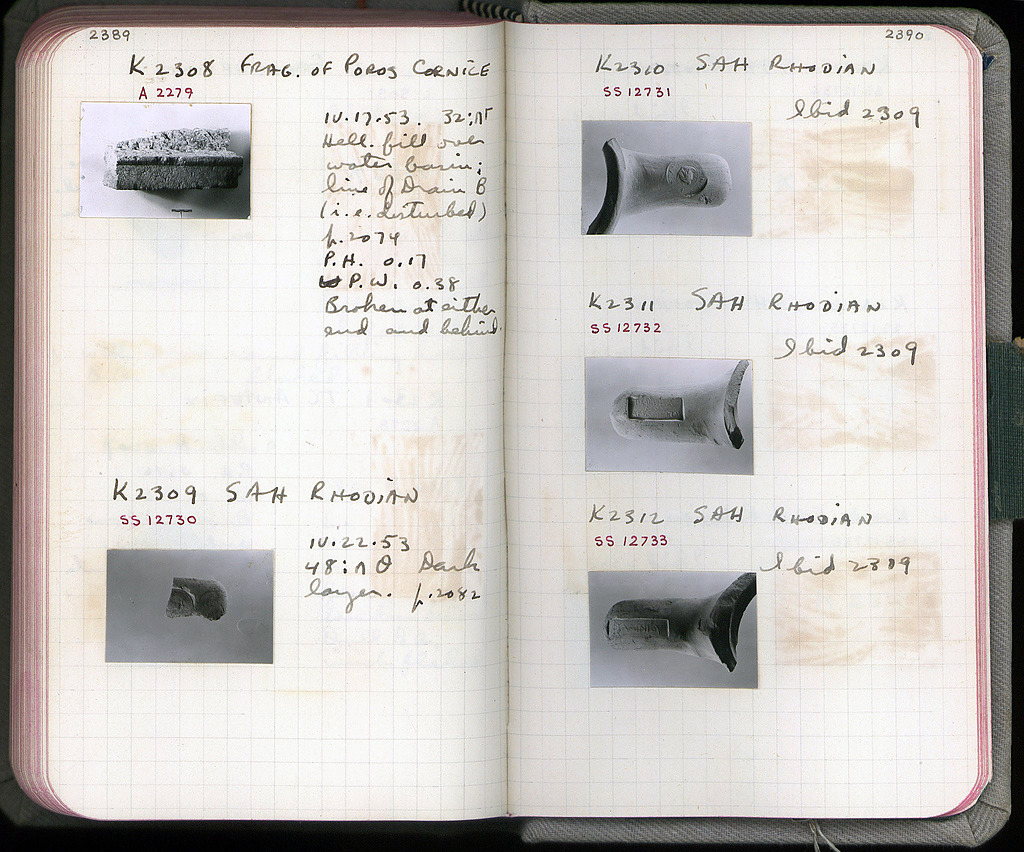 2389
K 2308 FRAG. OF POROS CORNICE
A 2279
IV.17.53. 32:ΛΓ
Hell. fill over
water basin;
line of Drain B
(i.e. disturbed)
p. 2074
P.H. 0.17
P.W. 0.38
Broken at either
end and behind.
K2309 SAH RHODIAN
SS 12730
IV.22.53
48:ΛΘ Dark
layer. p. 2082
2390
K2310 SAH RHODIAN
SS 12731
Ibid 2309
K2311 SAH RHODIAN
SS 12732
Ibid 2309
K2312 SAH RHODIAN
SS 12733
Ibid 2309